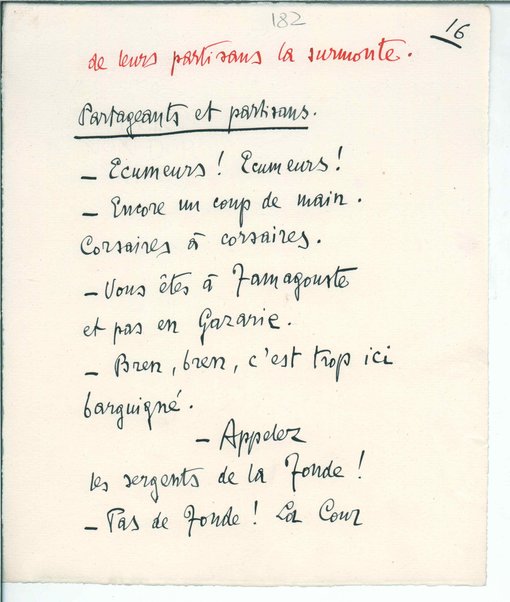 182
16
de leurs partisans la surmonte.
Partageants et partisans.
– Ecumeurs ! Ecumeurs !
– Encore un coup de main.
Corsaires à corsaires.
– Vous êtes à Famagouste
et pas en Gazarie.
– Bren, bren, c'est trop ici
barguigné.
– Appelez
les sergents de la Fonde !
– Pas de Fonde ! La Cour